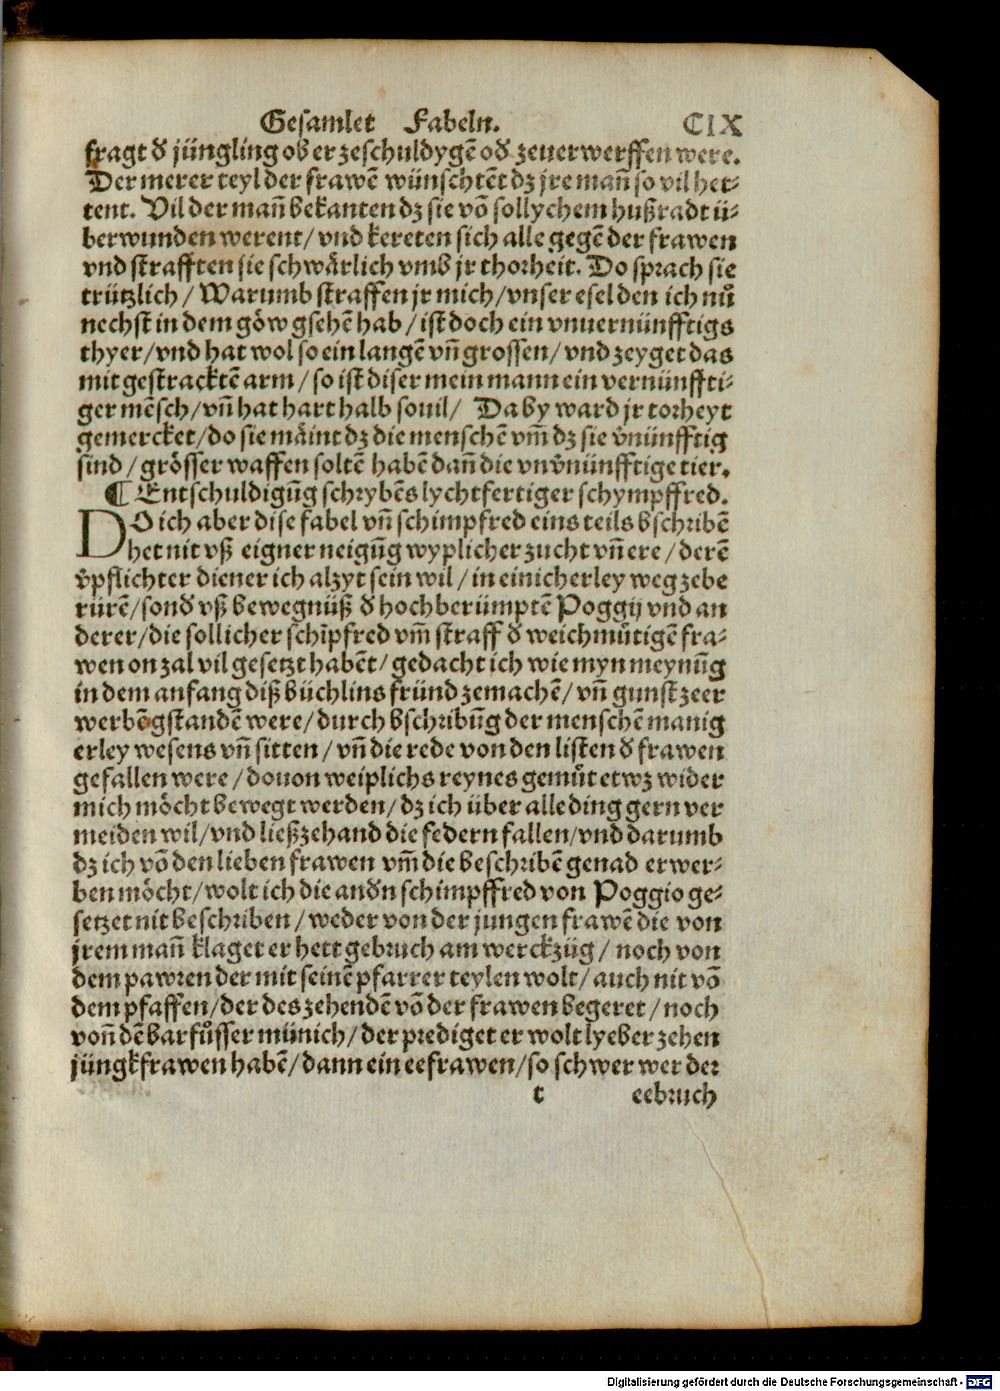 Gesamlet Fabeln. CIX
fragt d̕ jüngling ob er zeschuldygē od̕ zeuerwerffen were.
Der merer teyl der frawē wünschtēt dz jre mañ so vil het-
tent. Vil der mañ bekanten dz sie vō sollychem hußradt ü-
berwunden werent/ vnd kereten sich alle gegē der frawen
vnd strafften sie schwärlich vmb jr thorheit. Do sprach sie
trützlich/ Warumb straffen jr mich/vnser esel den ich nuͦ
nechst in dem göw gsehē hab/ ist doch ein vnuernünfftigs
thyer/vnd hat wol so ein langē vñ grossen/ vnd zeyget das
mit gestracktē arm/ so ist diser mein mann ein vernünffti-
ger mēsch/vñ hat hart halb souil/ Daby ward jr torheyt
gemercket/do sie mäint dz die menschē vm̄ dz sie v̄nünfftig
sind/grösser waffen soltē habē dañ die vnv̄nünfftige tier.
¶ Entschuldigūg schrybēs lychtfertiger schympffred.
DO ich aber dise fabel vñ schimpfred eins teils bschribē
het nit vß eigner neigūg wyplicher zucht vñ ere/derē
v̄pflichter diener ich alzyt sein wil/in einicherley weg zebe
rürē/sond̕ vß bewegnüß d̕ hochberümptē Poggij vnd an
derer/die sollicher schīpfred vm̄ straff d̕ weichmütigē fra-
wen on zal vil gesetzt habēt/gedacht ich wie myn meynūg
in dem anfang diß büchlins fründ zemachē/vñ gunst zeer
werbēgstandē were/durch bschribūg der menschē manig
erley wesens vñ sitten/vñ die rede von den listen d̕ frawen
gefallen were/douon weiplichs reynes gemüt etwz wider
mich möcht bewegt werden/dz ich über alle ding gern ver
meiden wil/vnd ließ zehand die federn fallen/vnd darumb
dz ich vō den lieben frawen vm̄ die beschribē genad erwer-
ben möcht/wolt ich die and̕n schimpffred von Poggio ge-
setzet nit beschriben/weder von der jungen frawē die von
jrem mañ klaget er hett gebruch am werckzüg/ noch von
dem pawren der mit seinē pfarrer teylen wolt/auch nit vō
dem pfaffen/der des zehendē vō der frawen begeret/noch
voñ dē barfuͦsser münich/der prediget er wolt lyeber zehen
jüngkfrawen habē/dann ein eefrawen/so schwer wer der
t eebruch
Digitalisierung gefördert durch die Deutsche Forschungsgemeinschaft - DFG